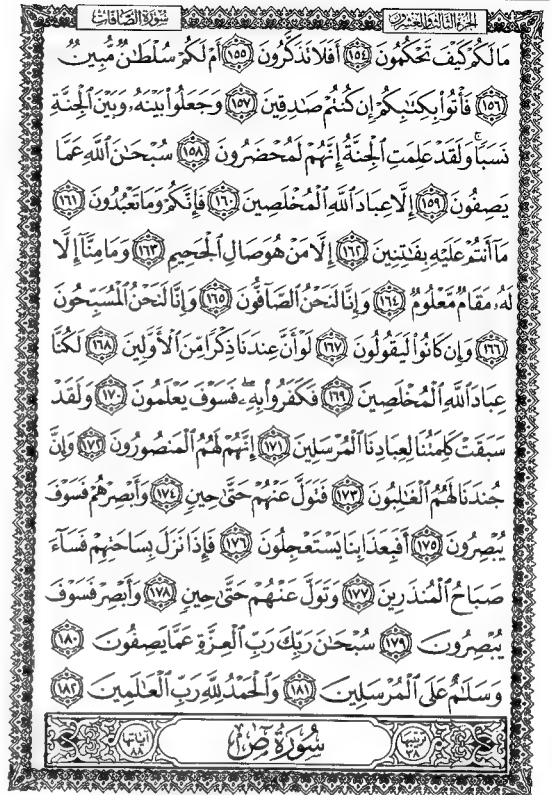 الجزء الثالث والعشرون
سورة الصافات
مَا لَكُمْ كَيْفَ تَحْكُمُونَ ١٥٤ أَفَلَا تَذَكَّرُونَ ١٥٥ أَمْ لَكُمْ سُلْطَٰنٌ مُّبِينٌ
١٥٦ فَأْتُوا۟ بِكِتَٰبِكُمْ إِن كُنتُمْ صَٰدِقِينَ ١٥٧ وَجَعَلُوا۟ بَيْنَهُۥ وَبَيْنَ ٱلْجِنَّةِ
نَسَبًا ۚ وَلَقَدْ عَلِمَتِ ٱلْجِنَّةُ إِنَّهُمْ لَمُحْضَرُونَ ١٥٨ سُبْحَٰنَ ٱللَّهِ عَمَّا
يَصِفُونَ ١٥٩ إِلَّا عِبَادَ ٱللَّهِ ٱلْمُخْلَصِينَ ١٦٠ فَإِنَّكُمْ وَمَا تَعْبُدُونَ ١٦١
مَآ أَنتُمْ عَلَيْهِ بِفَٰتِنِينَ ١٦٢ إِلَّا مَنْ هُوَ صَالِ ٱلْجَحِيمِ ١٦٣ وَمَا مِنَّآ إِلَّا
لَهُۥ مَقَامٌ مَّعْلُومٌ ١٦٤ وَإِنَّا لَنَحْنُ ٱلصَّآفُّونَ ١٦٥ وَإِنَّا لَنَحْنُ ٱلْمُسَبِّحُونَ
١٦٦ وَإِن كَانُوا۟ لَيَقُولُونَ ١٦٧ لَوْ أَنَّ عِندَنَا ذِكْرًا مِّنَ ٱلْأَوَّلِينَ ١٦٨ لَكُنَّا
عِبَادَ ٱللَّهِ ٱلْمُخْلَصِينَ ١٦٩ فَكَفَرُوا۟ بِهِۦ ۖ فَسَوْفَ يَعْلَمُونَ ١٧٠ وَلَقَدْ
سَبَقَتْ كَلِمَتُنَا لِعِبَادِنَا ٱلْمُرْسَلِينَ ١٧١ إِنَّهُمْ لَهُمُ ٱلْمَنصُورُونَ ١٧٢ وَإِنَّ
جُندَنَا لَهُمُ ٱلْغَٰلِبُونَ ١٧٣ فَتَوَلَّ عَنْهُمْ حَتَّىٰ حِينٍ ١٧٤ وَأَبْصِرْهُمْ فَسَوْفَ
يُبْصِرُونَ ١٧٥ أَفَبِعَذَابِنَا يَسْتَعْجِلُونَ ١٧٦ فَإِذَا نَزَلَ بِسَاحَتِهِمْ فَسَآءَ
صَبَاحُ ٱلْمُنذَرِينَ ١٧٧ وَتَوَلَّ عَنْهُمْ حَتَّىٰ حِينٍ ١٧٨ وَأَبْصِرْ فَسَوْفَ
يُبْصِرُونَ ١٧٩ سُبْحَٰنَ رَبِّكَ رَبِّ ٱلْعِزَّةِ عَمَّا يَصِفُونَ ١٨٠
وَسَلَٰمٌ عَلَى ٱلْمُرْسَلِينَ ١٨١ وَٱلْحَمْدُ لِلَّهِ رَبِّ ٱلْعَٰلَمِينَ ١٨٢
ترتيبها ٣٨ سُورَةُ صٓ آياتها ٨٨